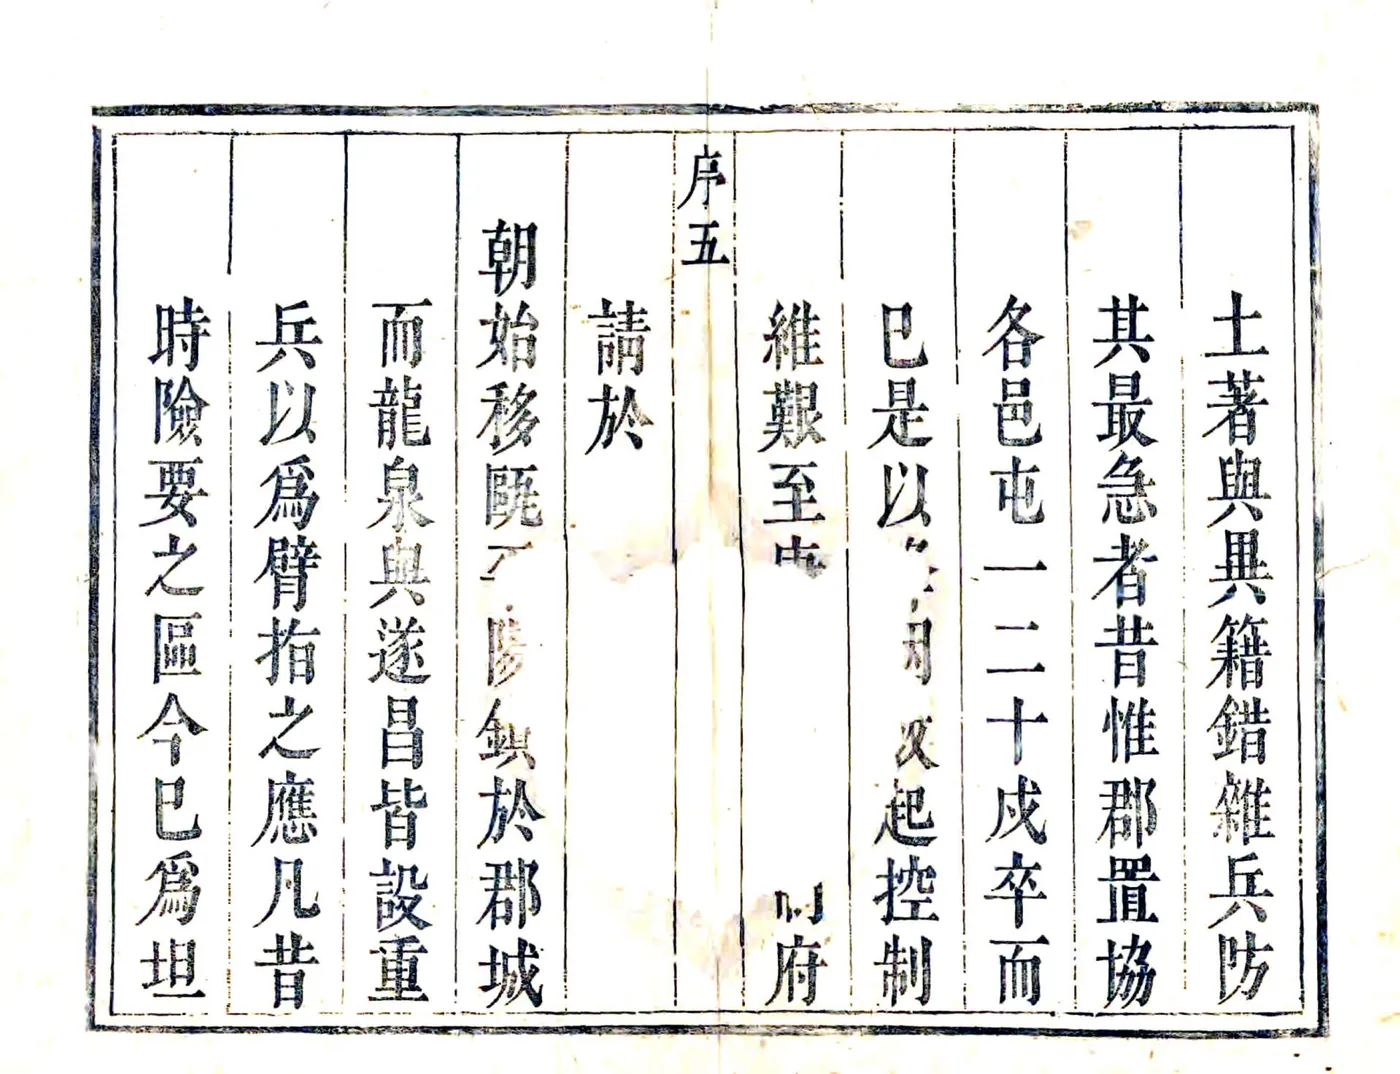 土著與異籍錯雜兵防
其最急者昔惟郡置協
各邑屯一二十戍卒而
巳是以起控制
維艱至府
序五
請於
朝始移甌鎮於郡城
而龍泉與遂昌皆設重
兵以爲臂指之應凡昔
時險要之區今巳爲坦